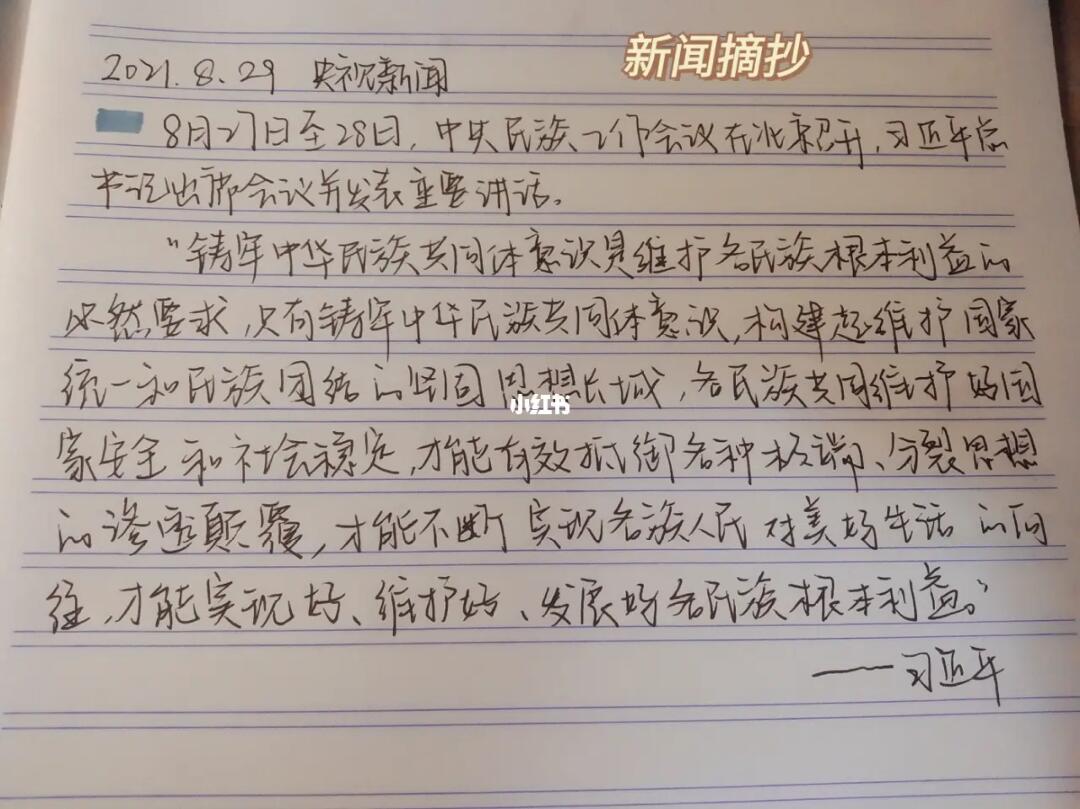 新闻摘抄
2021.8.29 央视新闻
8月27日至28日,中央民族工作会议在北京召开,习近平总
书记出席会议并发表重要讲话。
“铸牢中华民族共同体意识是维护各民族根本利益的
必然要求,只有铸牢中华民族共同体意识,构建起维护国家
统一和民族团结的坚固思想长城,各民族共同维护好国
家安全和社会稳定,才能有效抵御各种极端、分裂思想
的渗透颠覆,才能不断实现各族人民对美好生活的向
往,才能实现好、维护好、发展好各民族根本利益。”
——习近平
小红书